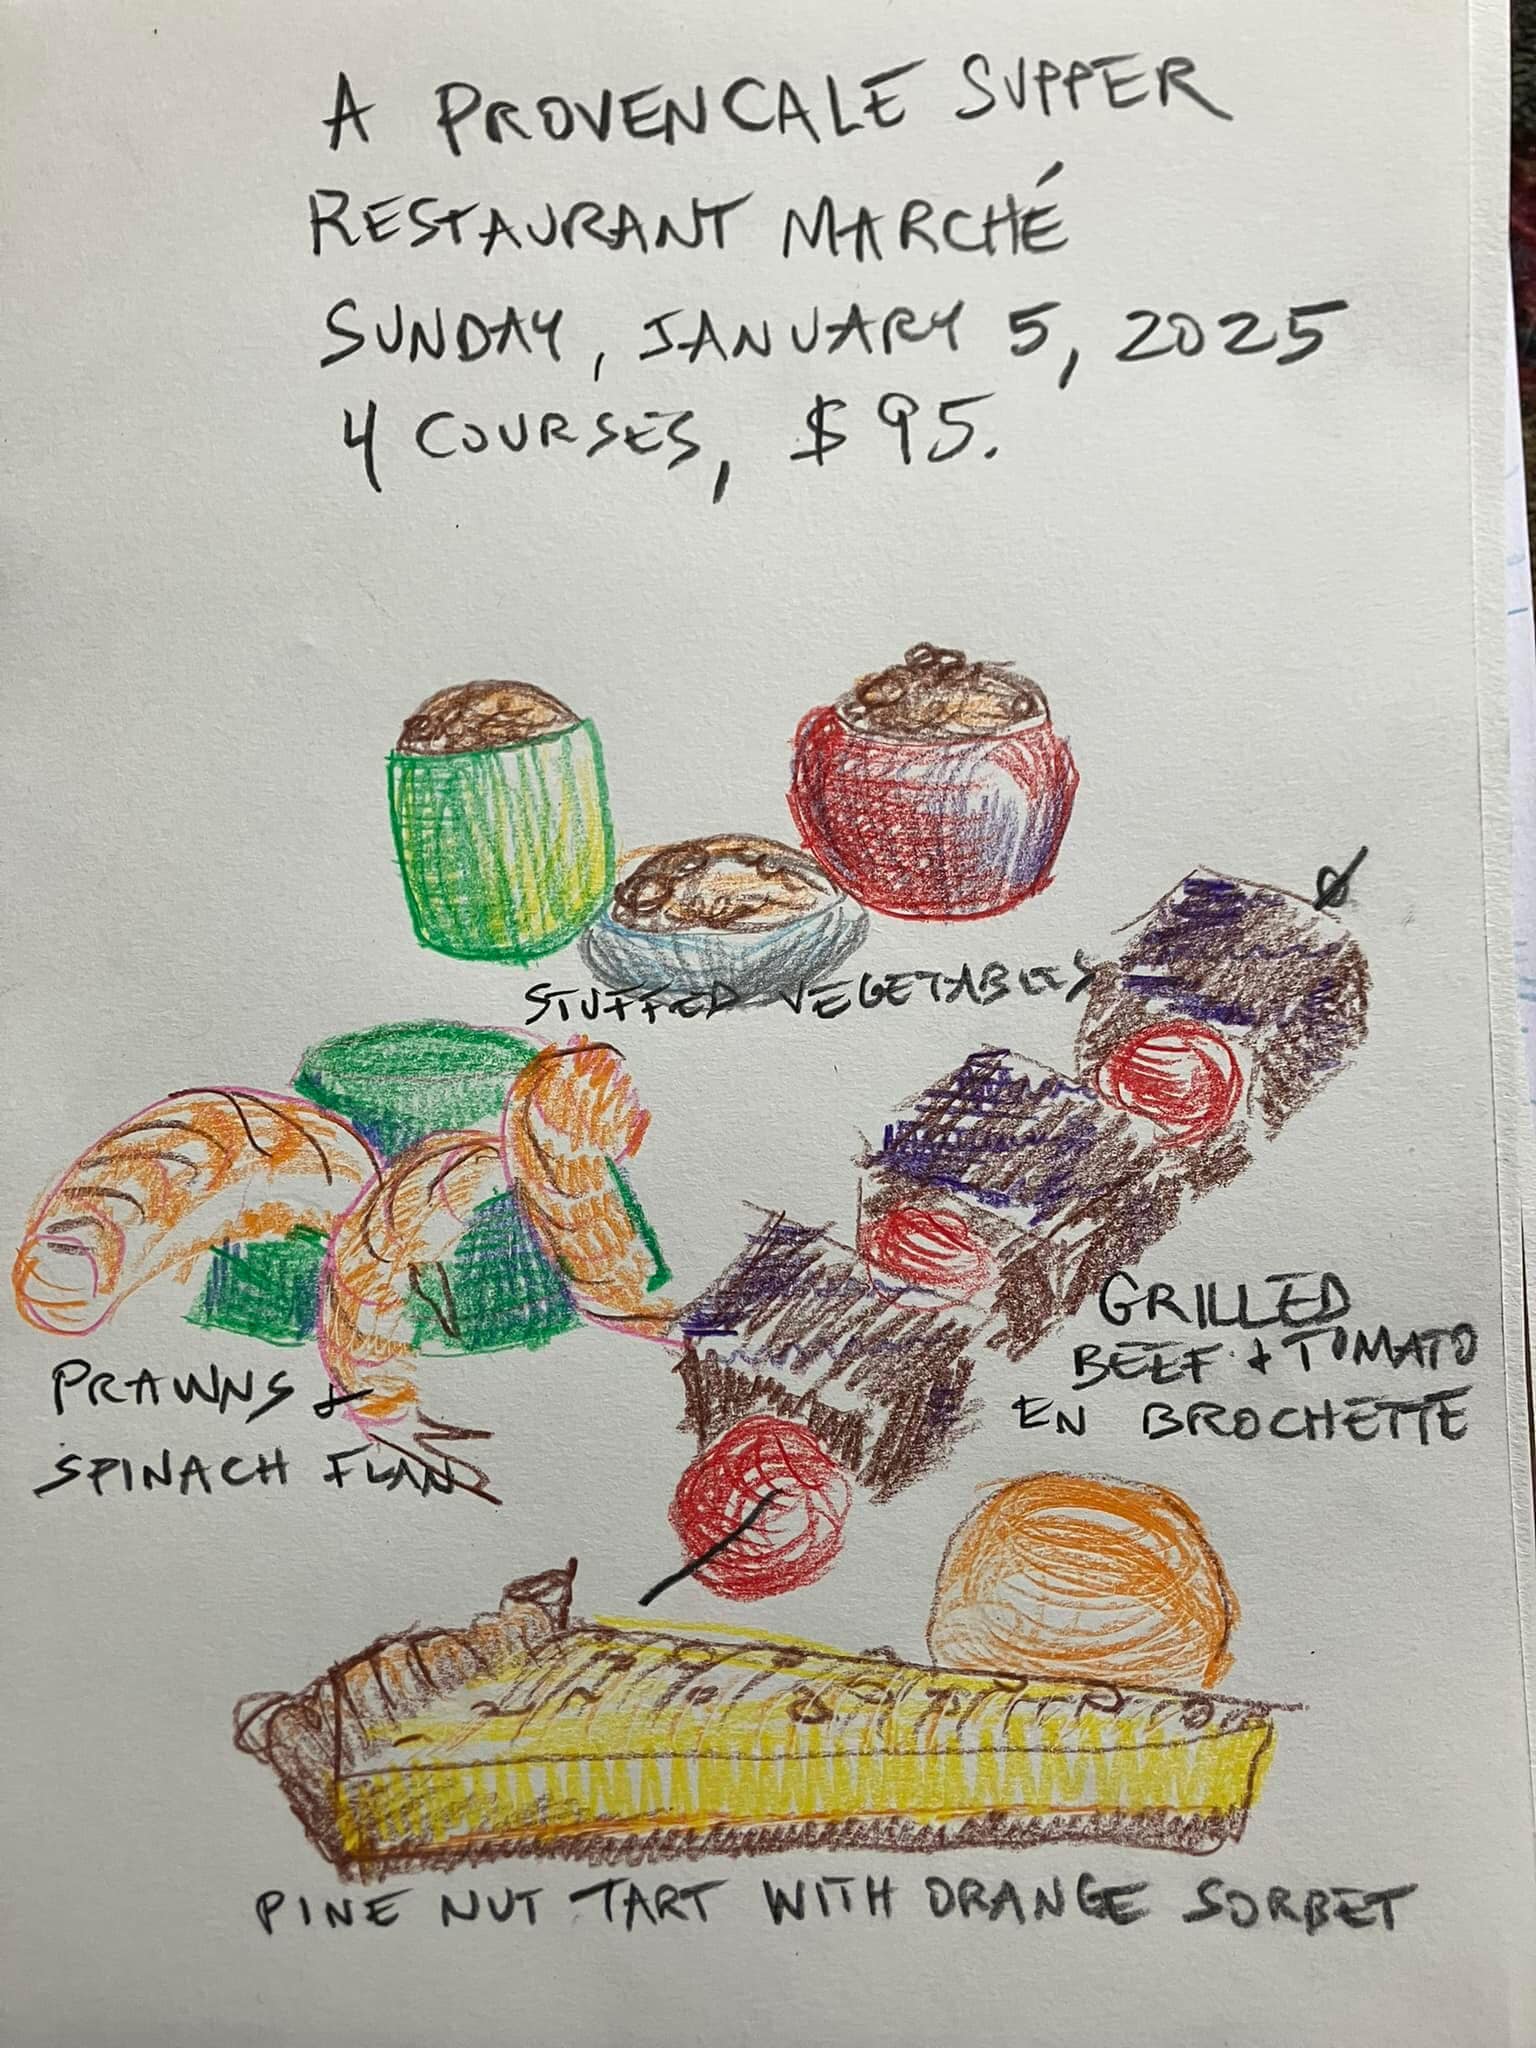 A PROVENCALE SUPPER
RESTAURANT MARCHÉ
SUNDAY, JANUARY 5, 2025
4 COURSES, $95.
STUFFED VEGETABLES
PRAWNS &
SPINACH FLAN
GRILLED
BEEF + TOMATO
EN BROCHETTE
PINE NUT TART WITH ORANGE SORBET